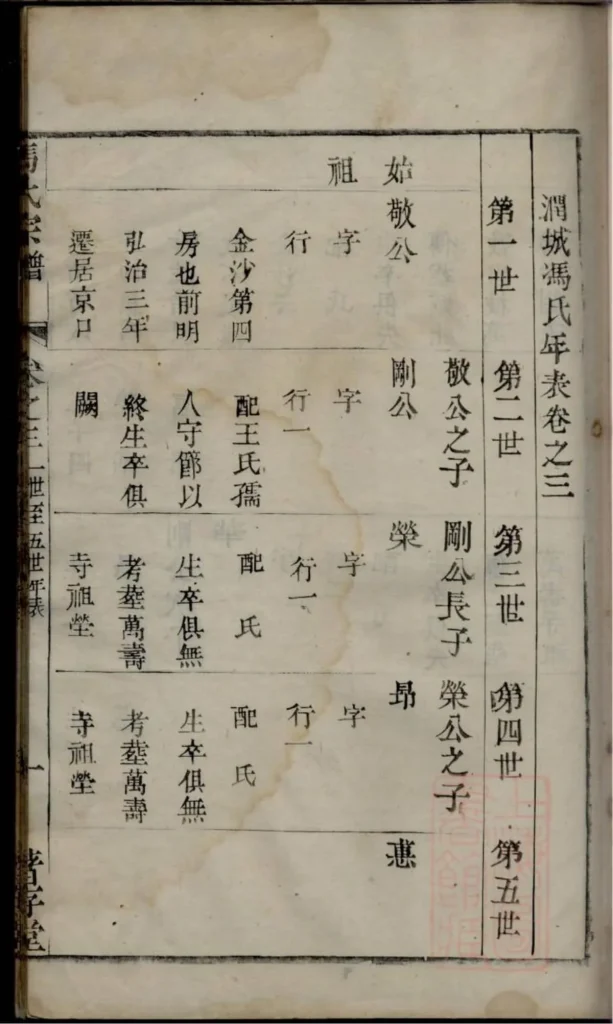 潤城馮氏年表卷之三
第一世
始
祖
敬公
字
行
金沙第四
房也前明
弘治三年
遷居京口
第二世
敬公之子
剛公
字
行一
配王氏孺
人守節以
終生卒俱
闕
第三世
剛公長子
榮
字
行一
配 氏
生卒俱無
考塟萬壽
寺祖塋
第四世
榮公之子
昂
字
行一
配 氏
生卒俱無
考塟萬壽
寺祖塋
第五世
惠
馮氏宗譜
卷之三 一世至五世年表
一
著存堂